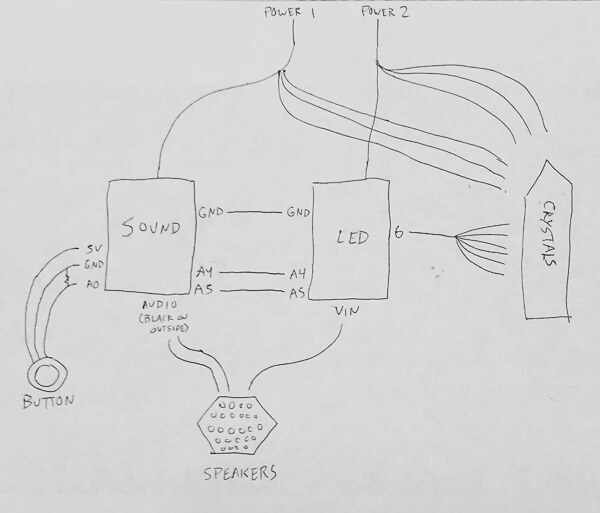 POWER 1
POWER 2
SOUND
GND
GND
LED
6
CRYSTALS
5V
GND
A0
A4
A4
A5
A5
AUDIO
(BLACK ON
OUTSIDE)
VIN
BUTTON
SPEAKERS